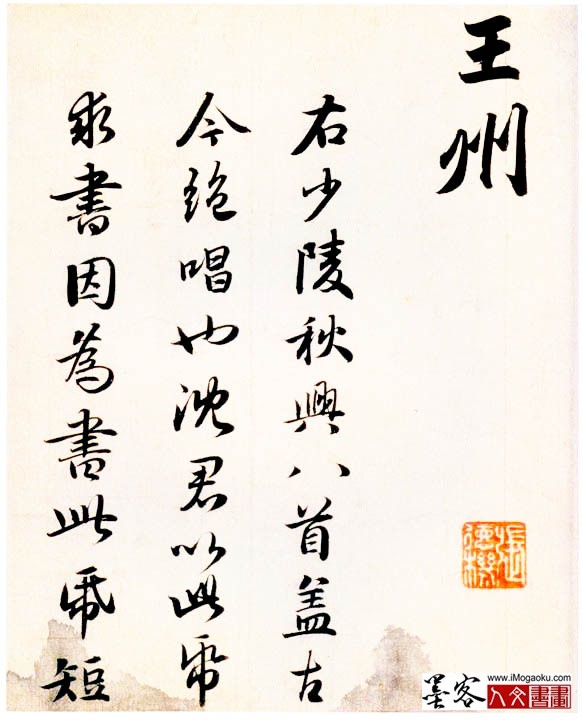 王州
右少陵秋興八首盖古
今絶唱也沈君以此帋
求書因為書此帋短
墨客
www.iMogaoku.com
人文書畫